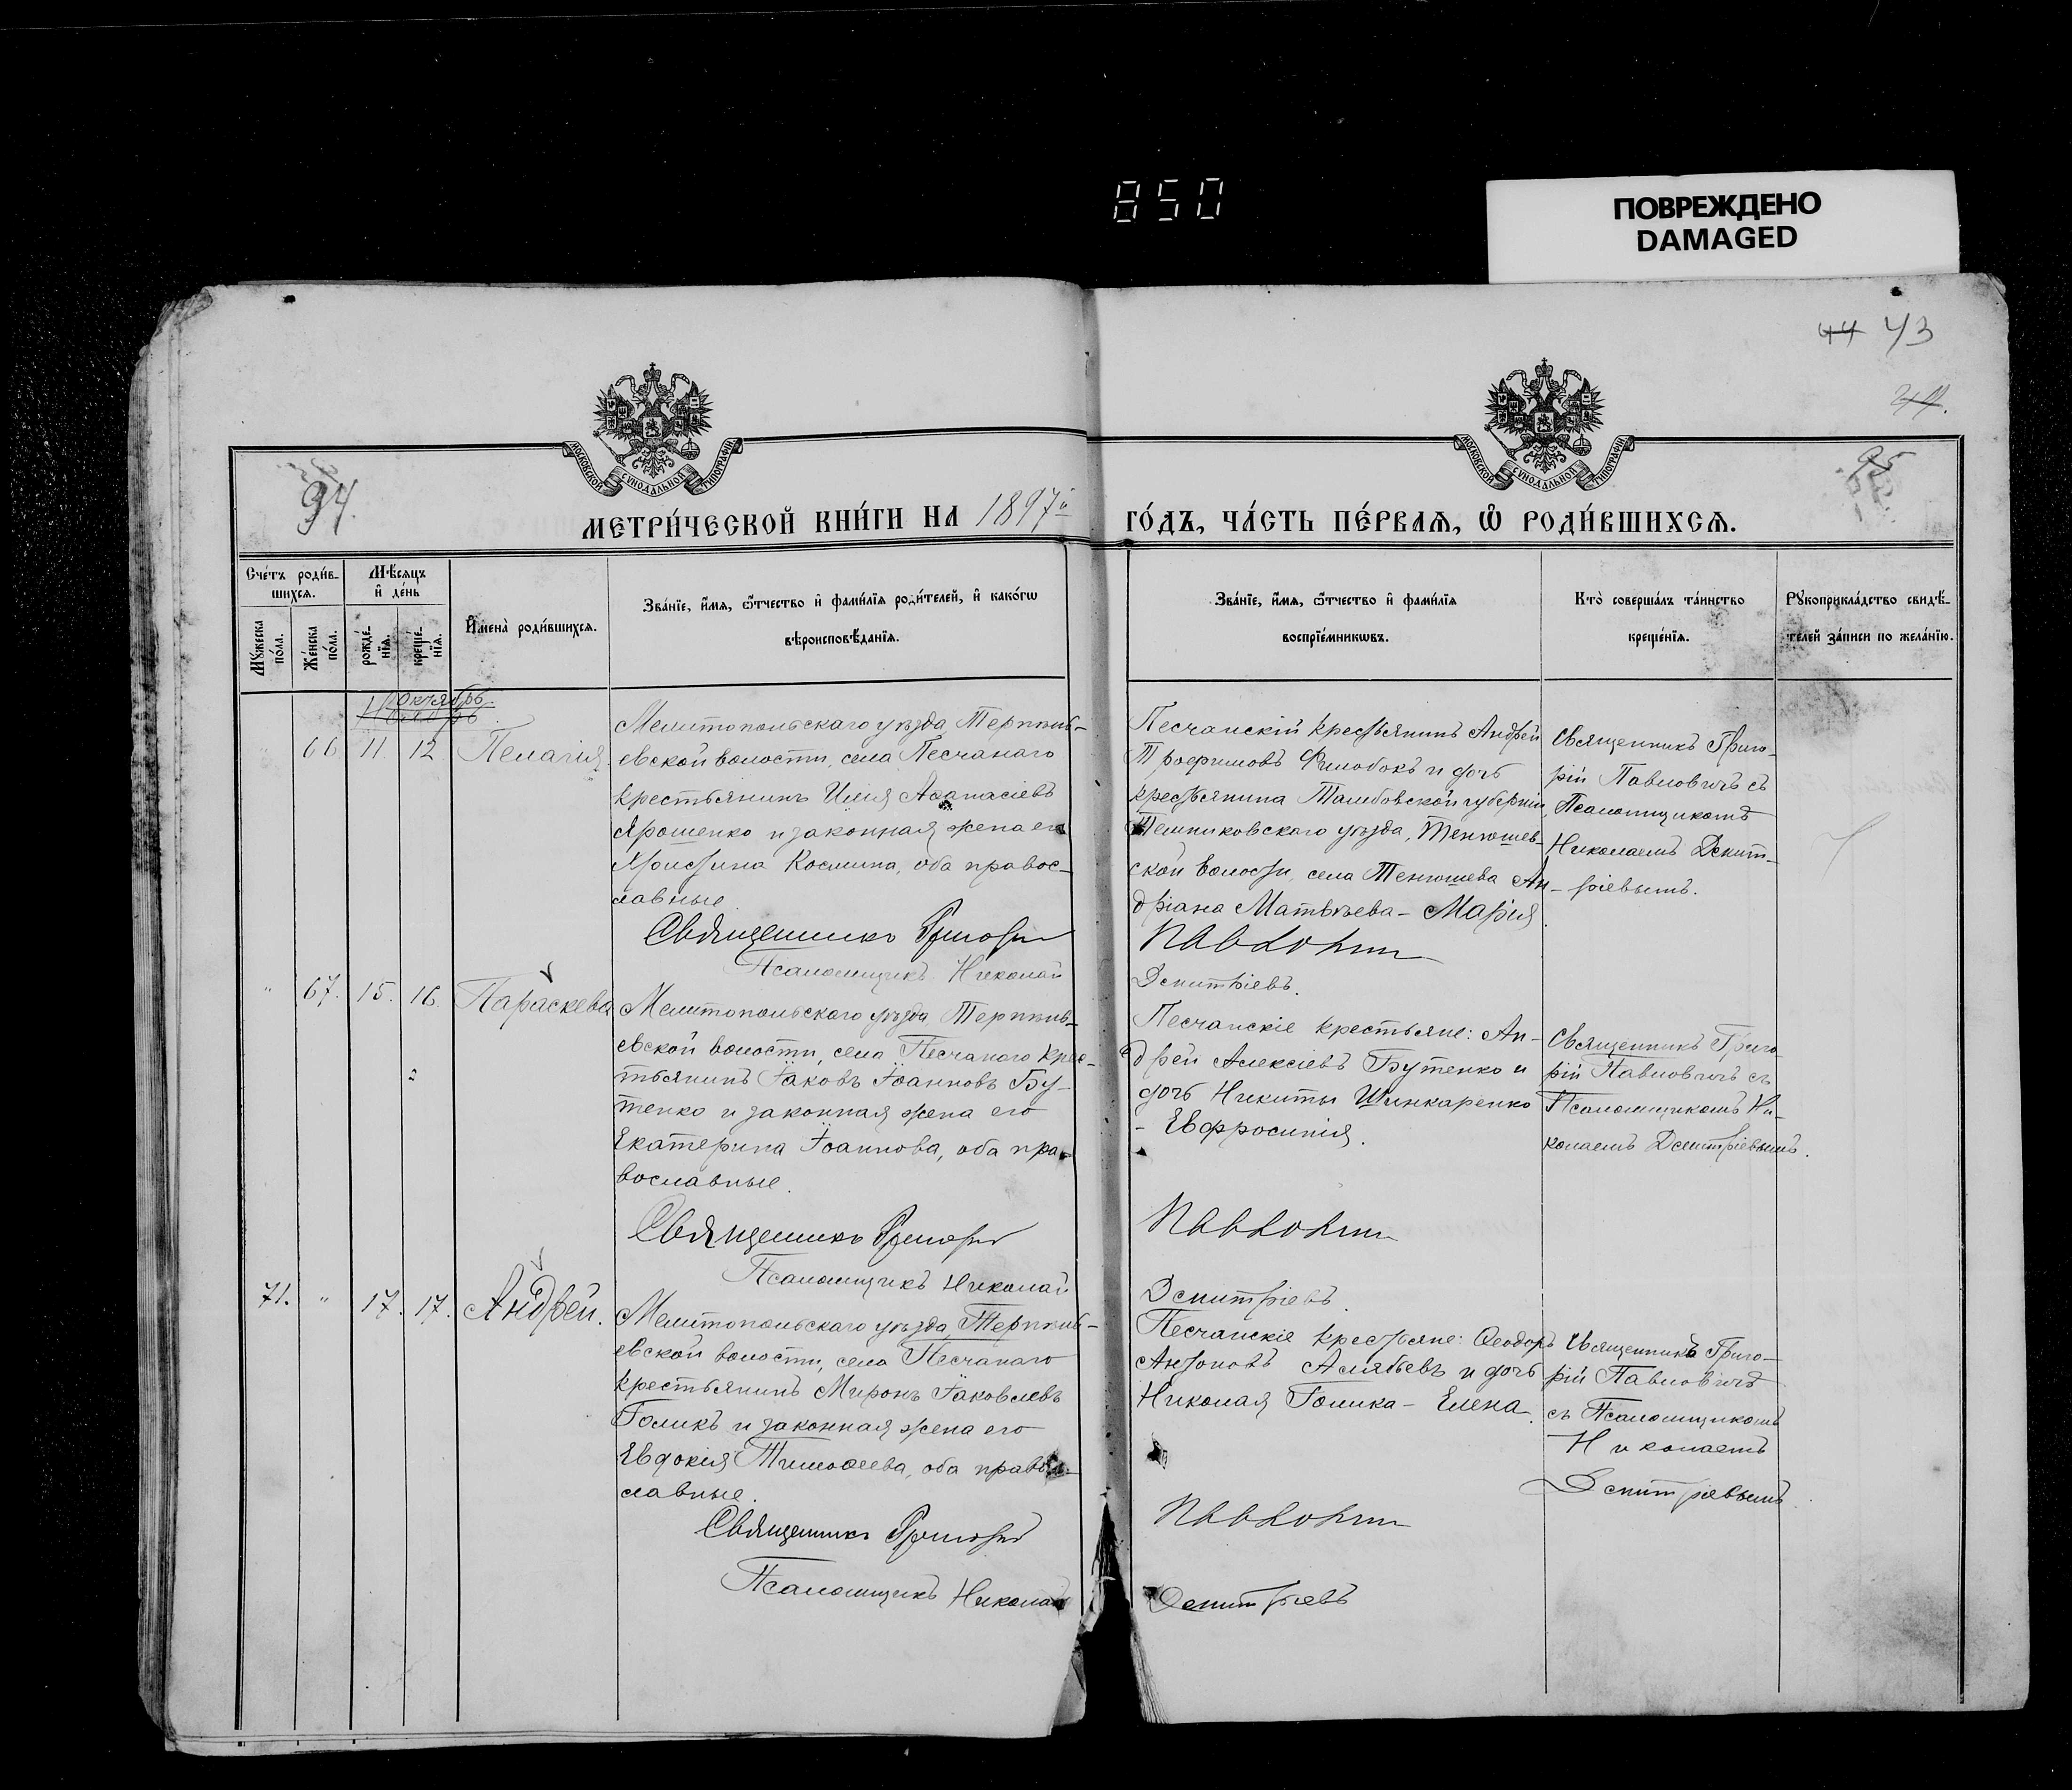 850
ПОВРЕЖДЕНО
DAMAGED
44 43
94.
95
МОСКОВСКОЙ СѴНОДАЛЬНОЙ ТИПОГРАФІИ
МОСКОВСКОЙ СѴНОДАЛЬНОЙ ТИПОГРАФІИ
МЕТРИ́ЧЕСКОЙ КНИ́ГИ НА 1897й ГО́ДЪ, ЧА́СТЬ ПЕ́РВАѦ, Ѡ҆ РОДИ́ВШИХСѦ.
Сче́тъ роди́в-
шихсѧ.
Мѣсѧцъ
и҆ де́нь
Мꙋ́жеска
по́ла.
Же́нска
по́ла.
рожде́-
нїѧ.
креще́-
нїѧ.
И҆мена̀ роди́вшихсѧ.
Зва́нїе, и҆́мѧ, ѻ҆́тчество и҆ фами́лїѧ роди́телей, и҆ како́гѡ
вѣроисповѣ́данїѧ.
Зва́нїе, и҆́мѧ, ѻ҆́тчество и҆ фами́лїѧ
воспрїе́мникѡвъ.
Кто̀ соверша́лъ та́инство
креще́нїѧ.
Рꙋкоприкла́дство свидѣ́-
телей за́писи по жела́нїю.
Октябрь.
Ноябрь
" 66 11. 12 Пелагія.
Мелитопольскаго уѣзда Терпѣнь-
евской волости, села Песчанаго
крестьянинъ Илія Аѳанасіевъ
Ярошенко и законная жена его
Христина Космина, оба правос-
лавные.
Священникъ Григорій
Псаломщикъ Николай
Песчанскій крестьянинъ Андрей
Трофимовъ Филобокъ и дочь
крестьянина Тамбовской губерніи,
Темниковскаго уѣзда, Тенюшев-
ской волости, села Тенюшева Ан-
дріана Матвѣева - Марія.
Павловичъ
Димитріевъ.
Священникъ Григо-
рій Павловичъ съ
Псаломщикомъ
Николаемъ Димит-
ріевымъ.
" 67. 15. 16. Параскева
2
Мелитопольскаго уѣзда Терпѣнь-
евской волости, села Песчаного крес-
тьянинъ Іаковъ Іоанновъ Бу-
тенко и законная жена его
Екатерина Іоаннова, оба пра-
вославные.
Священникъ Григорій
Псаломщикъ Николай
Песчанскіе крестьяне: Ан-
дрей Алексіевъ Бутенко и
дочь Никиты Шинкаренко
- Евфросинія.
Павловичъ
Димитріевъ.
Священникъ Григо-
рій Павловичъ съ
Псаломщикомъ Ни-
колаемъ Димитріевымъ.
71. " 17. 17. Андрей.
Мелитопольскаго уѣзда Терпѣнь-
евской волости, села Песчанаго
крестьянинъ Миронъ Іаковлевъ
Голикъ и законная жена его
Евдокія Тимоѳеева, оба правос-
лавные.
Священникъ Григорій
Псаломщикъ Николай
Песчанскіе крестьяне: Ѳеодоръ
Антоновъ Алябьевъ и дочь
Николая Голика - Елена.
Павловичъ
Димитріевъ
Священникъ Григо-
рій Павловичъ
съ Псаломщикомъ
Николаемъ
Димитріевымъ.